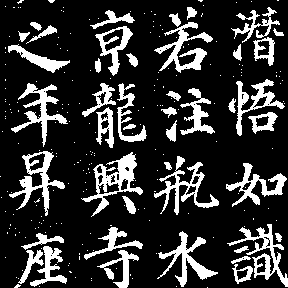 潛悟如識
若注瓶水
京龍興寺
之年昇座